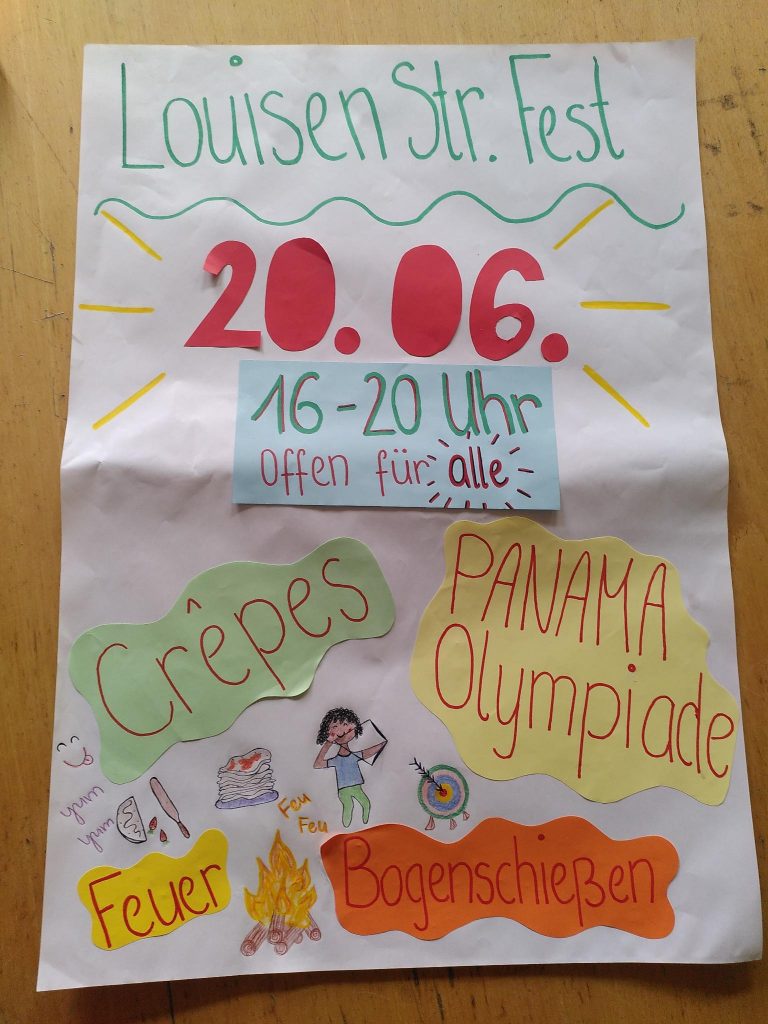 Louisen Str. Fest
20.06.
16-20 Uhr
Offen für alle
Crêpes
PANAMA
Olympiade
yum
yum
Feu
Feu
Feuer
Bogenschießen